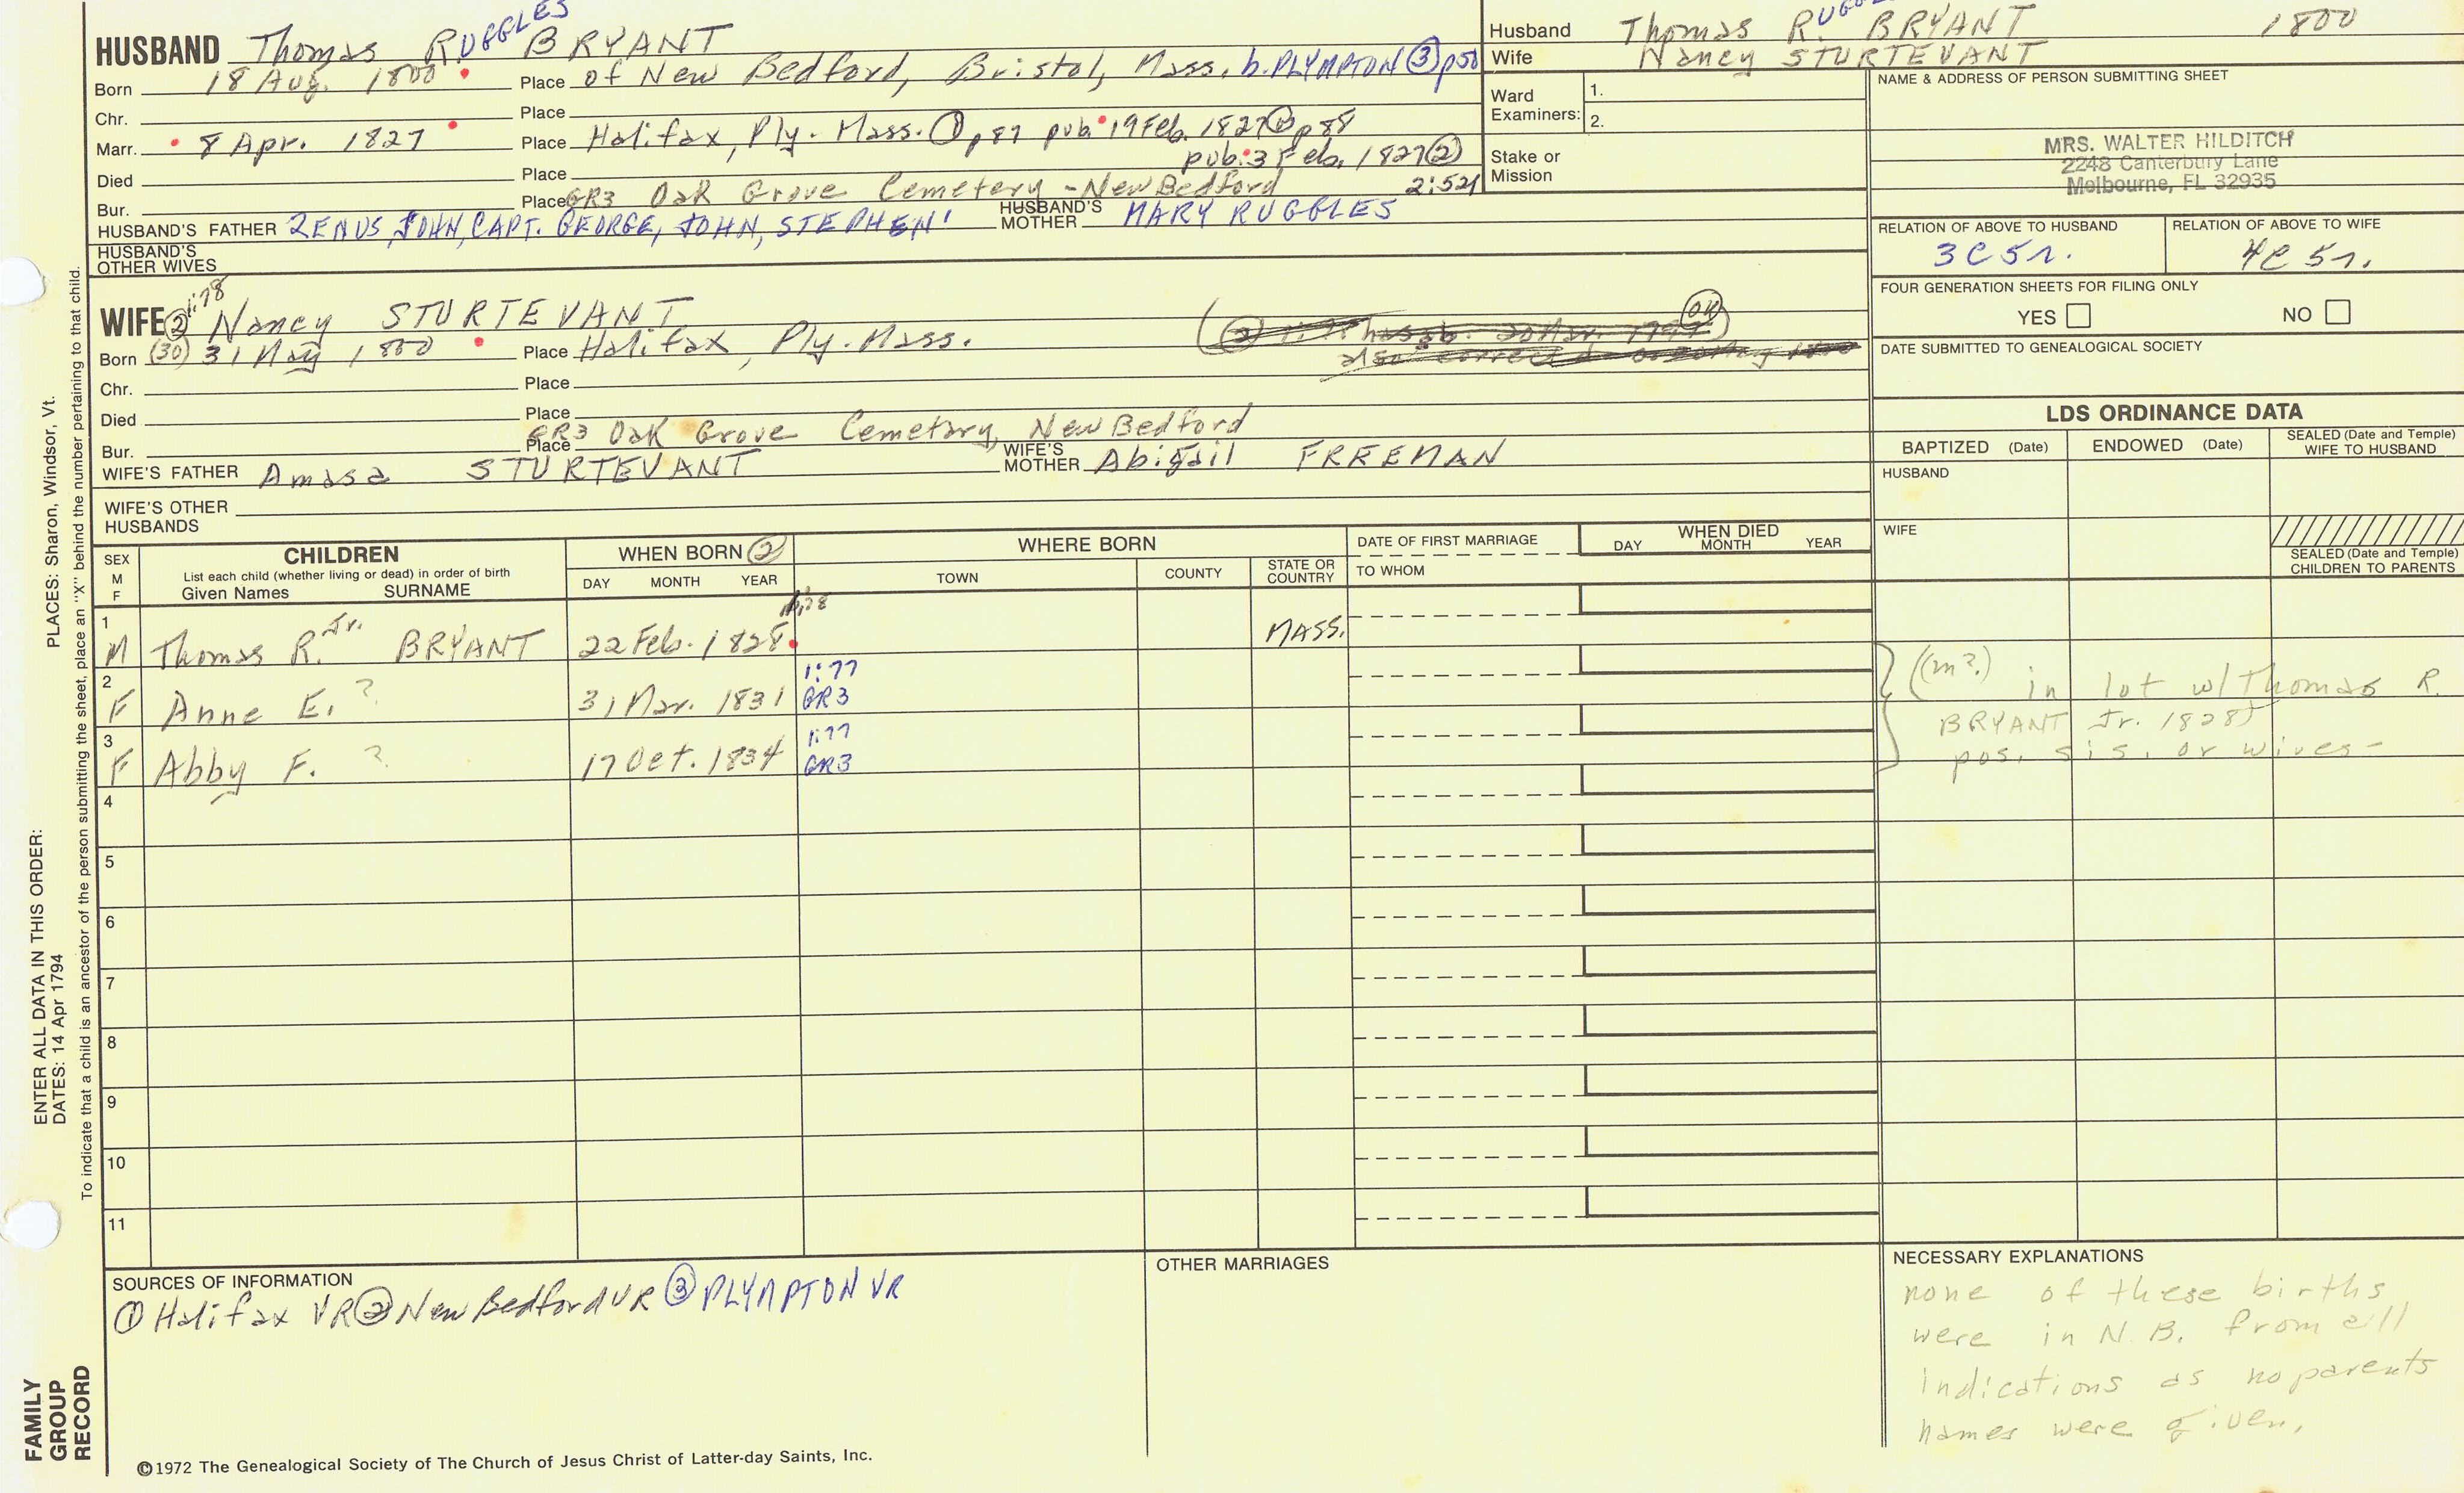 HUSBAND Thomas RUGGLES BRYANT
Born 18 Aug. 1800 Place of New Bedford, Bristol, Mass. b. PLYMPTON ③ p50
Chr. Place
Marr. 8 Apr. 1827 Place Halifax, Ply. Mass. ① p87 pub. 19 Feb. 1827 ② p88
pub. 3 Feb. 1827 ②
Died Place 2:521
Bur. Place GR3 Oak Grove Cemetery - New Bedford
HUSBAND'S FATHER ZENUS, JOHN, CAPT. GEORGE, JOHN, STEPHEN' HUSBAND'S MOTHER MARY RUGGLES
HUSBAND'S
OTHER WIVES
1:78
WIFE ② Nancy STURTEVANT
Born (30) 31 May 1800 Place Halifax, Ply. Mass.
Chr. Place
Died Place
Bur. Place GR3 Oak Grove Cemetary, New Bedford
WIFE'S FATHER Amasa STURTEVANT WIFE'S MOTHER Abigail FREEMAN
WIFE'S OTHER
HUSBANDS
Husband Thomas RUGG BRYANT 1800
Wife Nancy STURTEVANT
Ward
Examiners: 1.
2.
Stake or
Mission
NAME & ADDRESS OF PERSON SUBMITTING SHEET
MRS. WALTER HILDITCH
2248 Canterbury Lane
Melbourne, FL 32935
RELATION OF ABOVE TO HUSBAND RELATION OF ABOVE TO WIFE
3C5r. 4C5r.
FOUR GENERATION SHEETS FOR FILING ONLY
YES NO
DATE SUBMITTED TO GENEALOGICAL SOCIETY
LDS ORDINANCE DATA
BAPTIZED (Date) ENDOWED (Date) SEALED (Date and Temple)
WIFE TO HUSBAND
HUSBAND
WIFE
SEALED (Date and Temple)
CHILDREN TO PARENTS
SEX
M
F
CHILDREN
List each child (whether living or dead) in order of birth
Given Names SURNAME
WHEN BORN ②
DAY MONTH YEAR
WHERE BORN
TOWN COUNTY STATE OR COUNTRY
DATE OF FIRST MARRIAGE
TO WHOM
WHEN DIED
DAY MONTH YEAR
1 M Thomas R. Jr. BRYANT 22 Feb. 1828 MASS.
2 F Anne E. ? 31 Mar. 1831 1:77 GR3
3 F Abby F. ? 17 Oct. 1834 1:77 GR3
(m?) in lot w/ Thomas R.
BRYANT Jr. 1828)
pos. sis. or wives -
4
5
6
7
8
9
10
11
SOURCES OF INFORMATION
① Halifax VR ② New Bedford VR ③ PLYMPTON VR
OTHER MARRIAGES
NECESSARY EXPLANATIONS
none of these births
were in N.B. from all
indications as no parents
names were given.
©1972 The Genealogical Society of The Church of Jesus Christ of Latter-day Saints, Inc.
FAMILY
GROUP
RECORD
ENTER ALL DATA IN THIS ORDER:
DATES: 14 Apr 1794
PLACES: Sharon, Windsor, Vt.
To indicate that a child is an ancestor of the person submitting the sheet, place an "X" behind the number pertaining to that child.